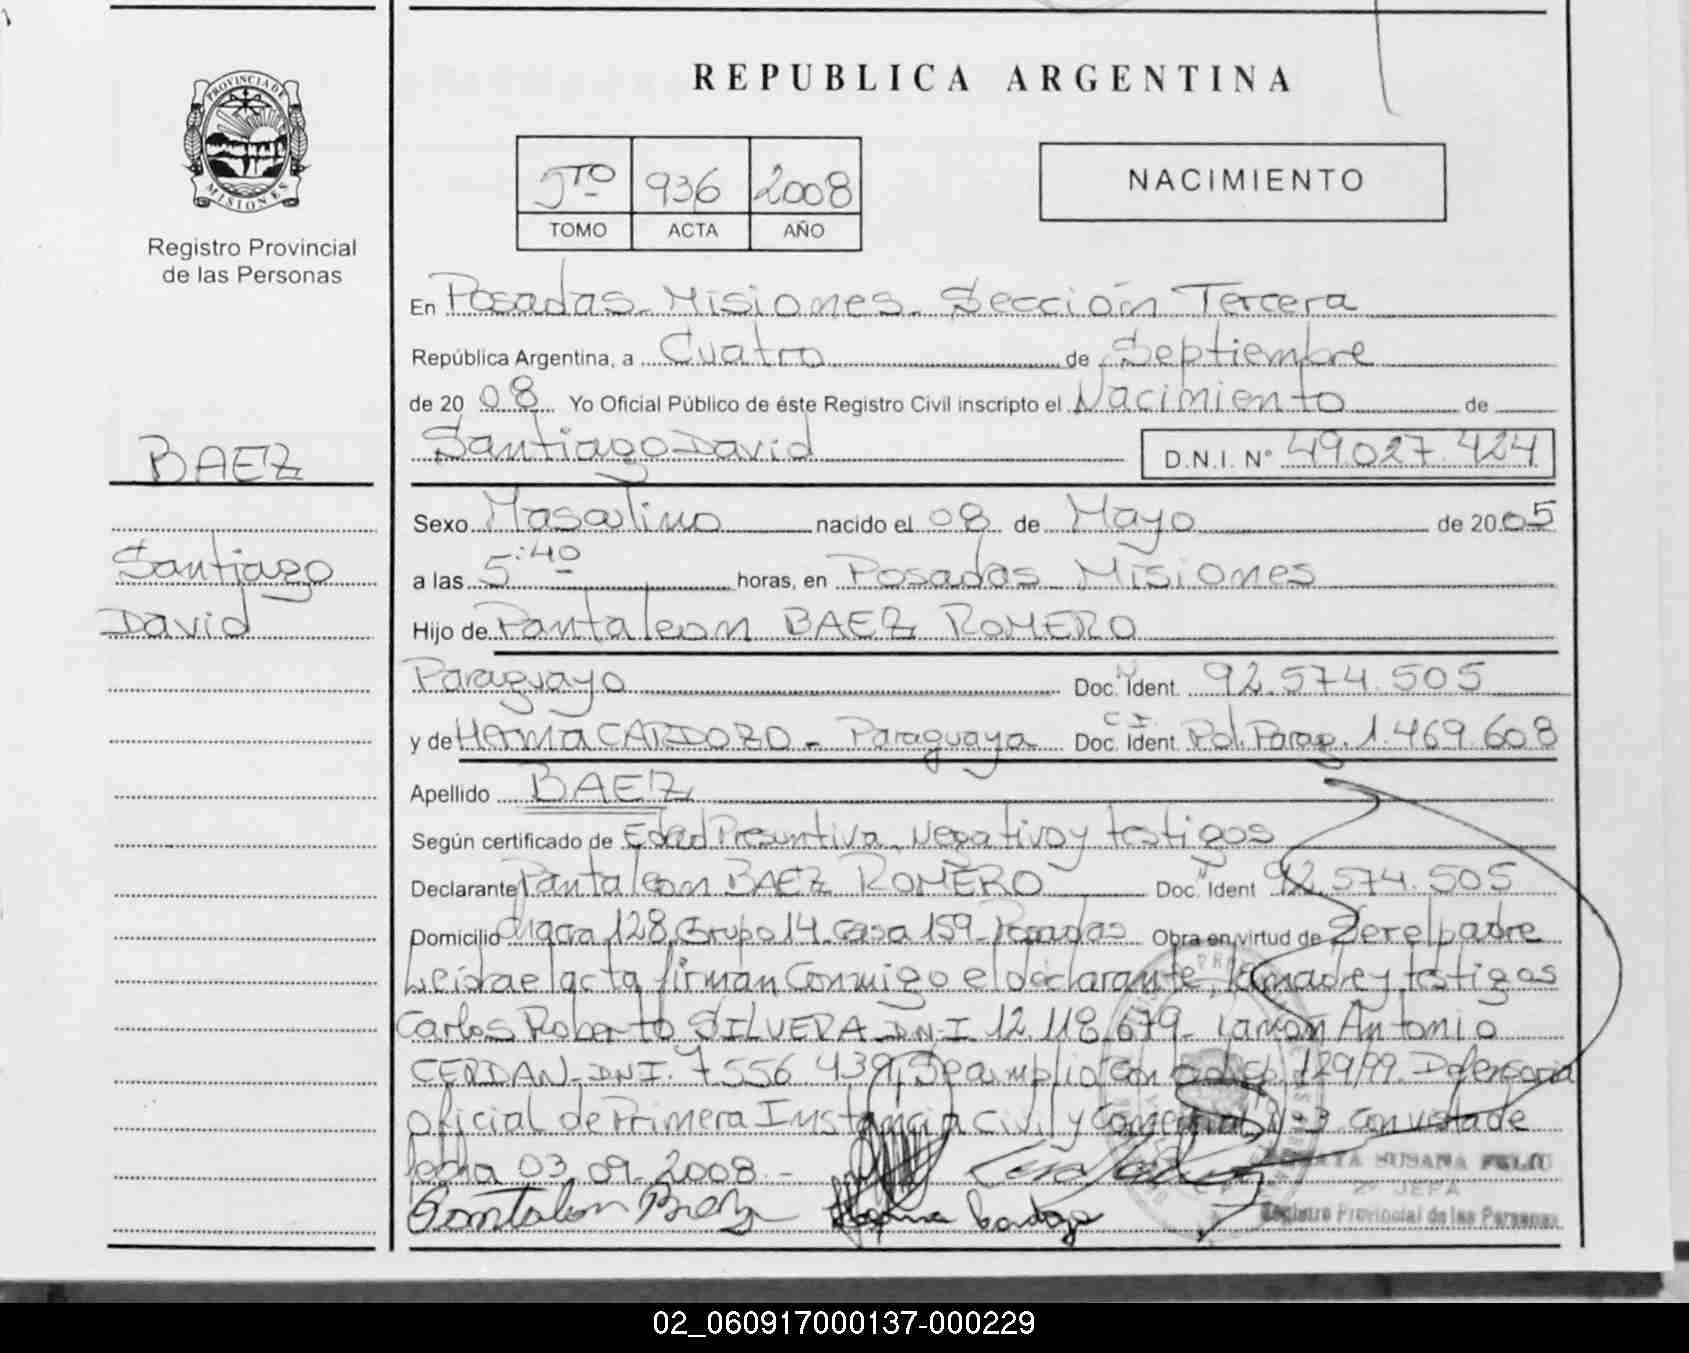 PROVINCIA DE
MISIONES
Registro Provincial
de las Personas
BAEZ
Santiago
David
REPUBLICA ARGENTINA
5TO 936 2008
TOMO ACTA AÑO
NACIMIENTO
En Posadas - Misiones - Sección Tercera
República Argentina, a Cuatro de Septiembre
de 2008 Yo Oficial Público de éste Registro Civil inscripto el Nacimiento de
Santiago David D.N.I. N° 49.027.424
Sexo Masculino nacido el 08 de Mayo de 2005
a las 5:40 horas, en Posadas Misiones
Hijo de Pantaleon BAEZ ROMERO
Paraguayo Doc. Ident. 92.574.505
y de CARDOZO - Paraguaya C.I. Doc. Ident. Pol. Parag. 1.469.608
Apellido BAEZ
Según certificado de Edad Presuntiva, Negativo y testigos
Declarante Pantaleon BAEZ ROMERO Doc. Ident 92.574.505
Domicilio Chacra 128, Grupo 14 - Casa 159 - Posadas Obra en virtud de Ser el padre
Leída el acta, firman Conmigo el declarante, la madre y testigos
Carlos Roberto SILVERA D.N.I. 12.118.679 - Ramón Antonio
CERDAN - DNI. 7.556.439, Se amplio con 129/99. Defensoria
Oficial de Primera Instancia Civil y Comercial N° 3 con vista de
fecha 03.09.2008.-
Pantaleon Baez Cardozo
SUSANA FELIU
2° JEFA
Registro Provincial de las Personas
02_060917000137-000229